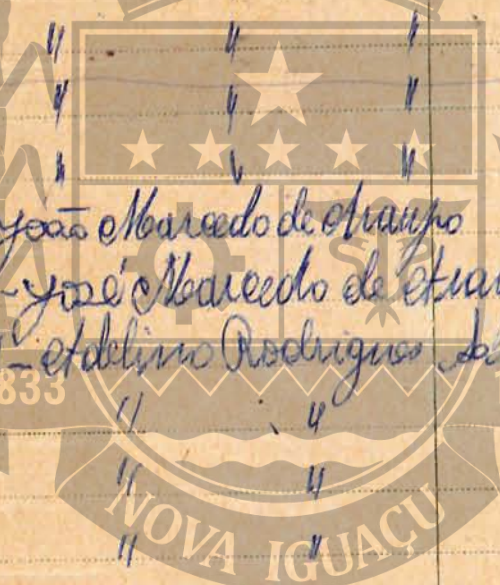 " " "
" " "
" " "
João Marcedo de Araujo
- José Marcedo de Arau
- Adelino Rodrigues
833
" "
" "
NOVA IGUAÇU
" "